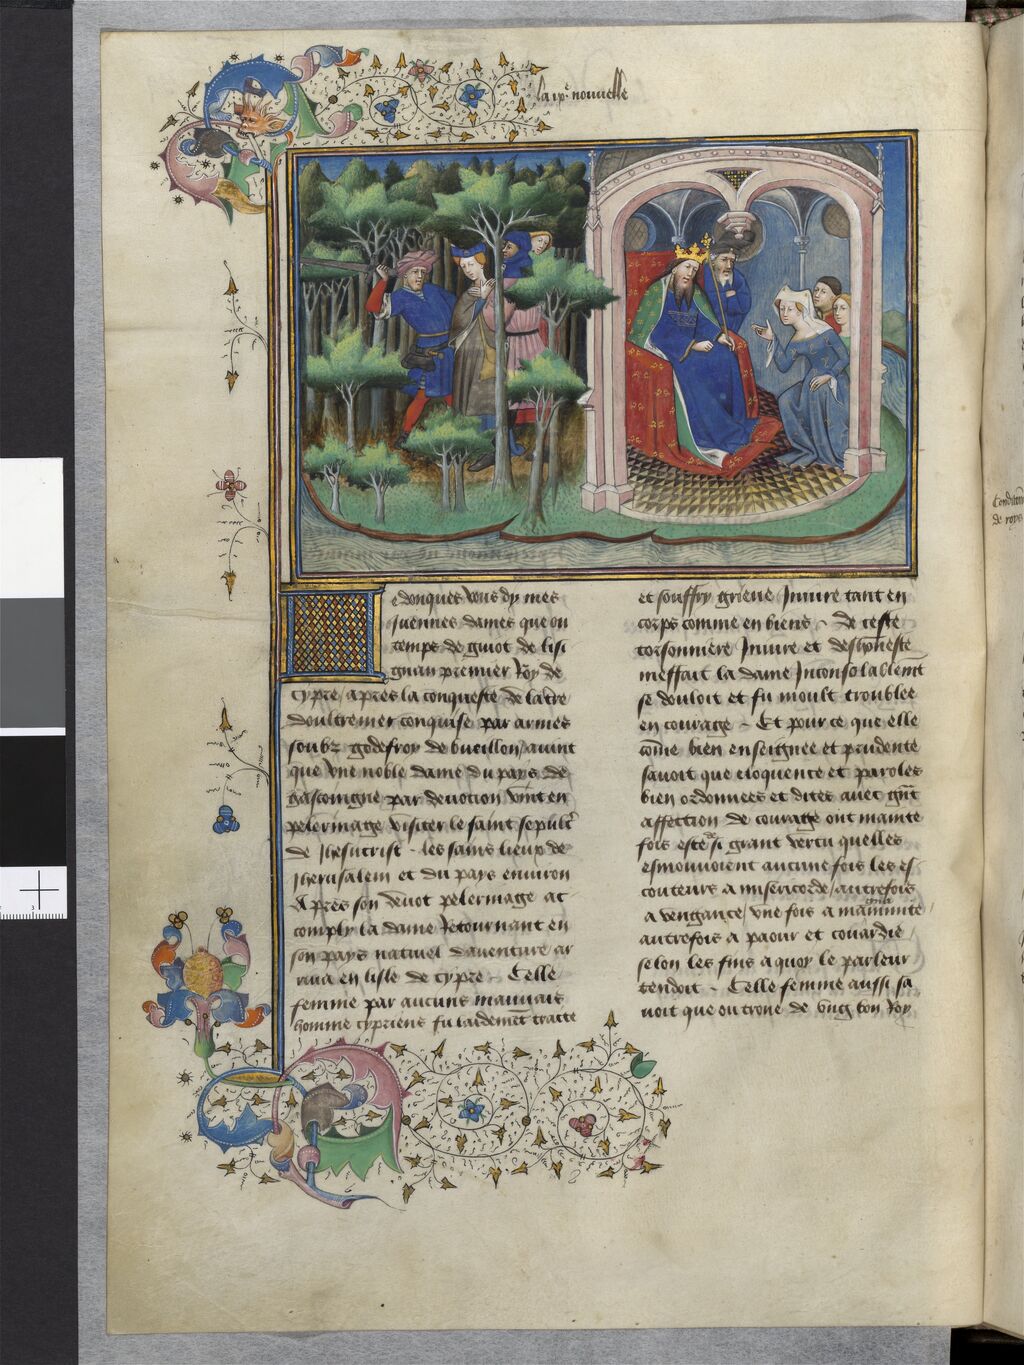 la ixe nouuelle
e donques vous dy mes
Juennes dames que ou
temps de guiot de lisi
gnan premier Roy de
cypre / apres la conqueste de la tre
doultremer conquise par armes
soubz godefroy de bueillon / auint
que vne noble dame du pays de
gascoingne par deuotion vint en
pelerinage visiter le saint sepulcre
de Jhesucrist - les sains lieux de
Jherusalem et du pays enuiron
Apres son deuot pelerinage ac
comply la dame Retournant en
son pays naturel dauenture ar
riua en lisle de cypre - Celle
femme par aucuns mauuais
homme cypriens fu laidement traitie
et souffry grieue Iniure tant en
corps comme en biens - De ceste
Iniure et deshoneste
meffait la dame Inconsolablemt
se douloit et fu moult troublee
en courage - Et pour ce que elle
cõme bien enseignee et prudente
sauoit que eloquence et paroles
bien ordonnees et dites auec gñt
affection de courage ont mainte
fois este de si grant vertu quelles
esmouuoient aucune fois les es
couteurs a misericorde / autrefois
a vengance / vne fois a
autrefois a paour et couardie
selon les fins a quoy le parleur
tendoit - Celle femme aussi sa
uoit que ou trone de vng bon Roy
de roys